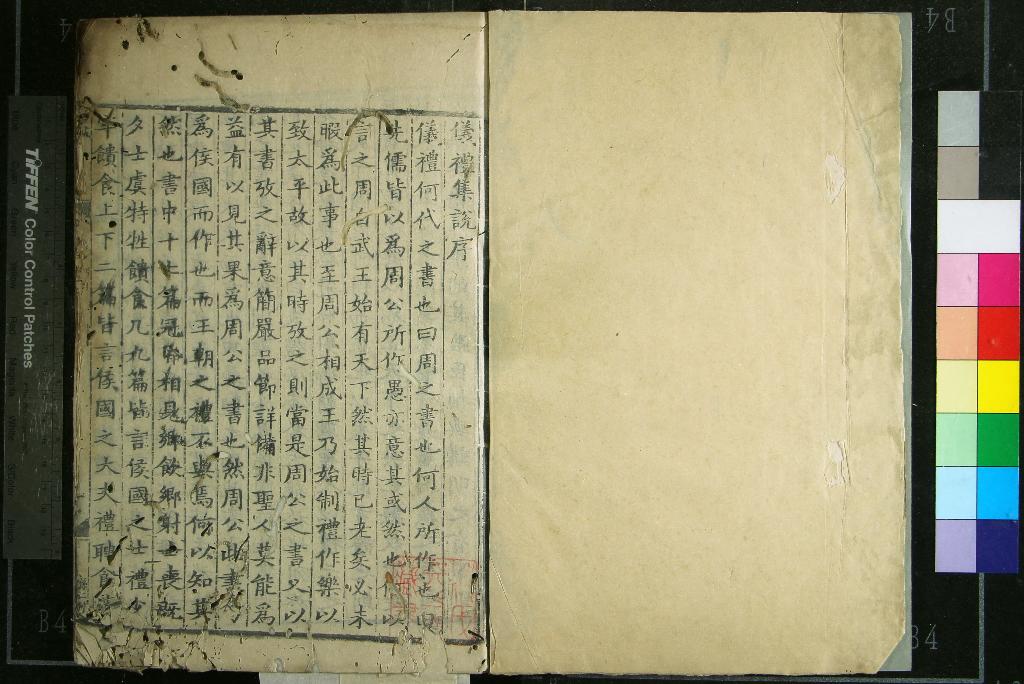 儀禮集說序
儀禮何代之書也曰周之書也何人所作也曰
先儒皆以爲周公所作愚亦意其或然也何以
言之周自武王始有天下然其時已老矣必未
暇爲此事也至周公相成王乃始制禮作樂以
致太平故以其時攷之則當是周公之書又以
其書攷之辭意簡嚴品節詳備非聖人莫能爲
益有以見其果爲周公之書也然周公此書
爲侯國而作也而王朝之禮不與焉何以知其
然也書中十七篇冠昏相見鄉飲鄉射士喪既
夕士虞特牲饋食凡九篇皆言侯國之士禮少
牢饋食上下二篇皆言侯國之大夫禮聘食
TIFFEN Color Control Patches
B4
B4
B4